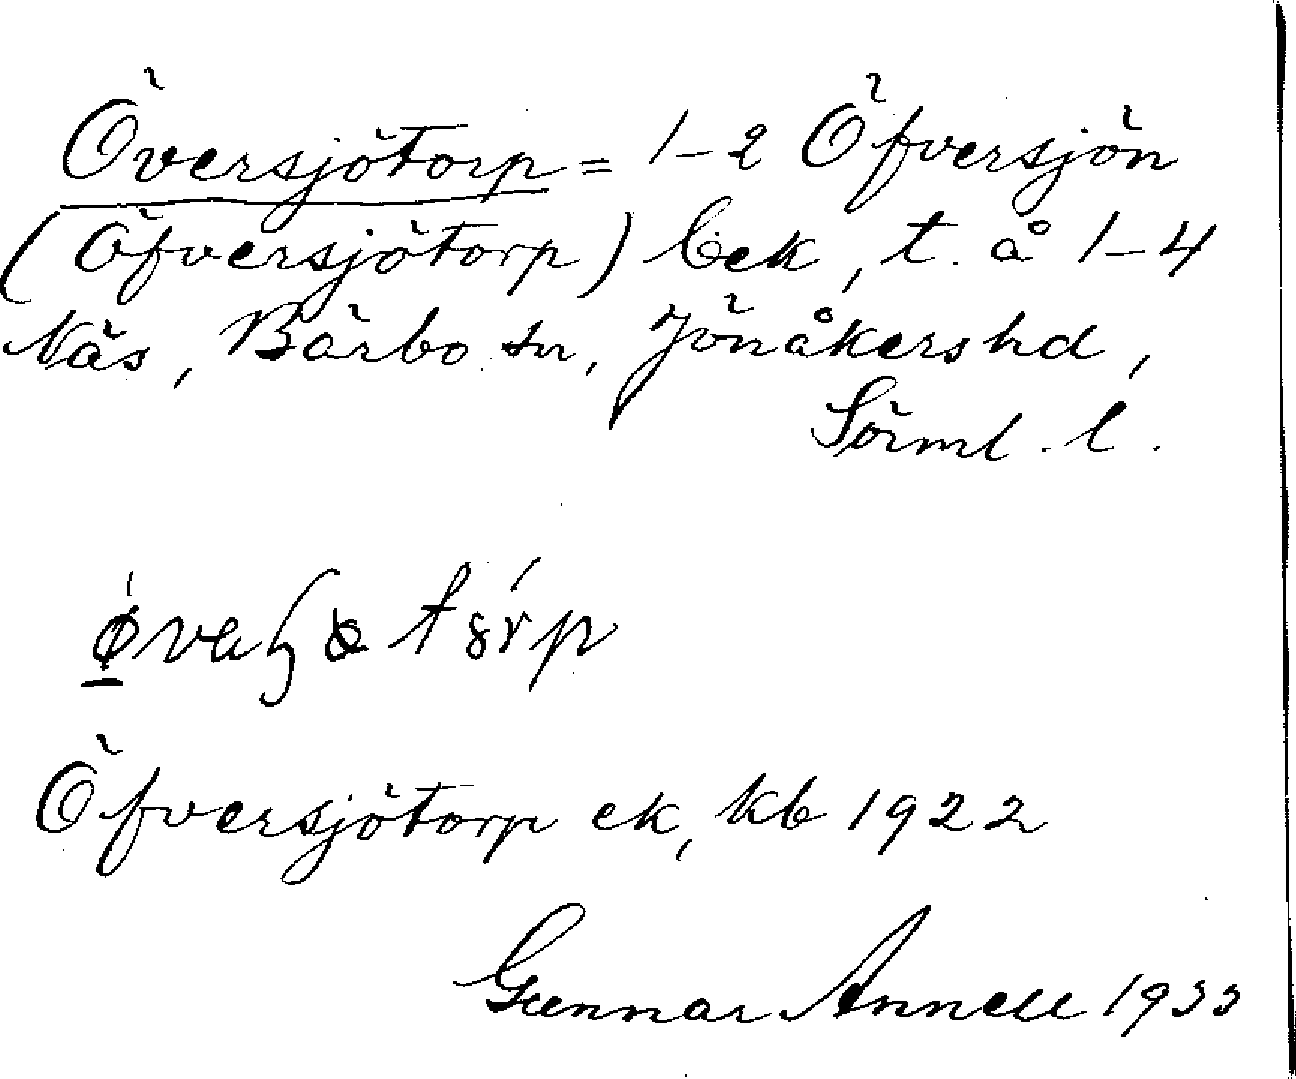 Översjötorp = 1-2 Öfversjön
(Öfversjötorp) bek, t. å 1-4
Näs, Bärbo sn, Jönåkers hd,
Sörml. l.
Öfversjötorp ek, kb 1922
Gunnar Annell 1933